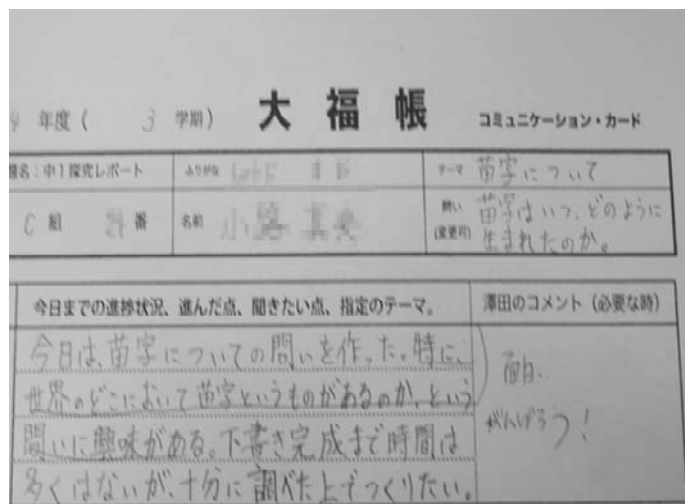 4 年度 ( 3 学期) 大福帳 コミュニケーション・カード
名：中1探究レポート ふりがな テーマ 苗字について
C 組 番 名前 問い (変更可) 苗字はいつ、どのように
生まれたのか。
今日までの進捗状況、進んだ点、聞きたい点、指定のテーマ。 澤田のコメント（必要な時）
今日は、苗字についての問いを作った。特に、
世界のどこにおいて苗字というものがあるのか、という
問いに興味がある。下書き完成まで時間は
多くはないが、十分に調べた上でつくりたい。
面白
がんばろう！